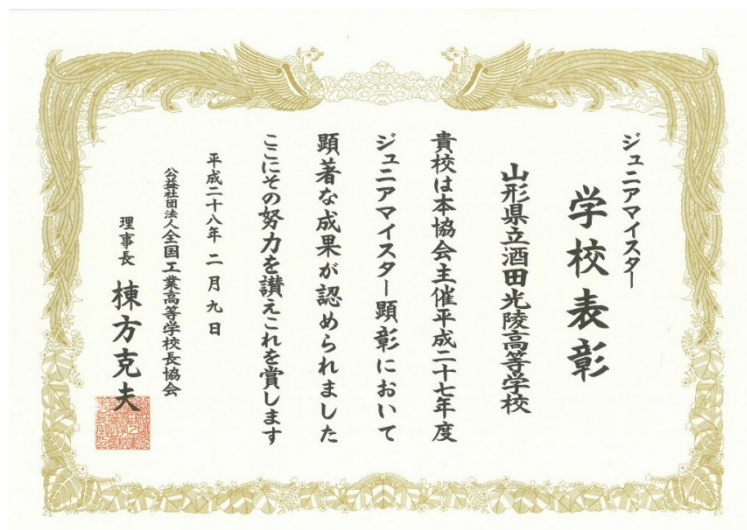 ジュニアマイスター
学校表彰
山形県立酒田光陵高等学校
貴校は本協会主催平成二十七年度
ジュニアマイスター顕彰において
顕著な成果が認められました
ここにその努力を讃えこれを賞します
平成二十八年 二月九日
公益社団法人全国工業高等学校長協会
理事長 棟方克夫